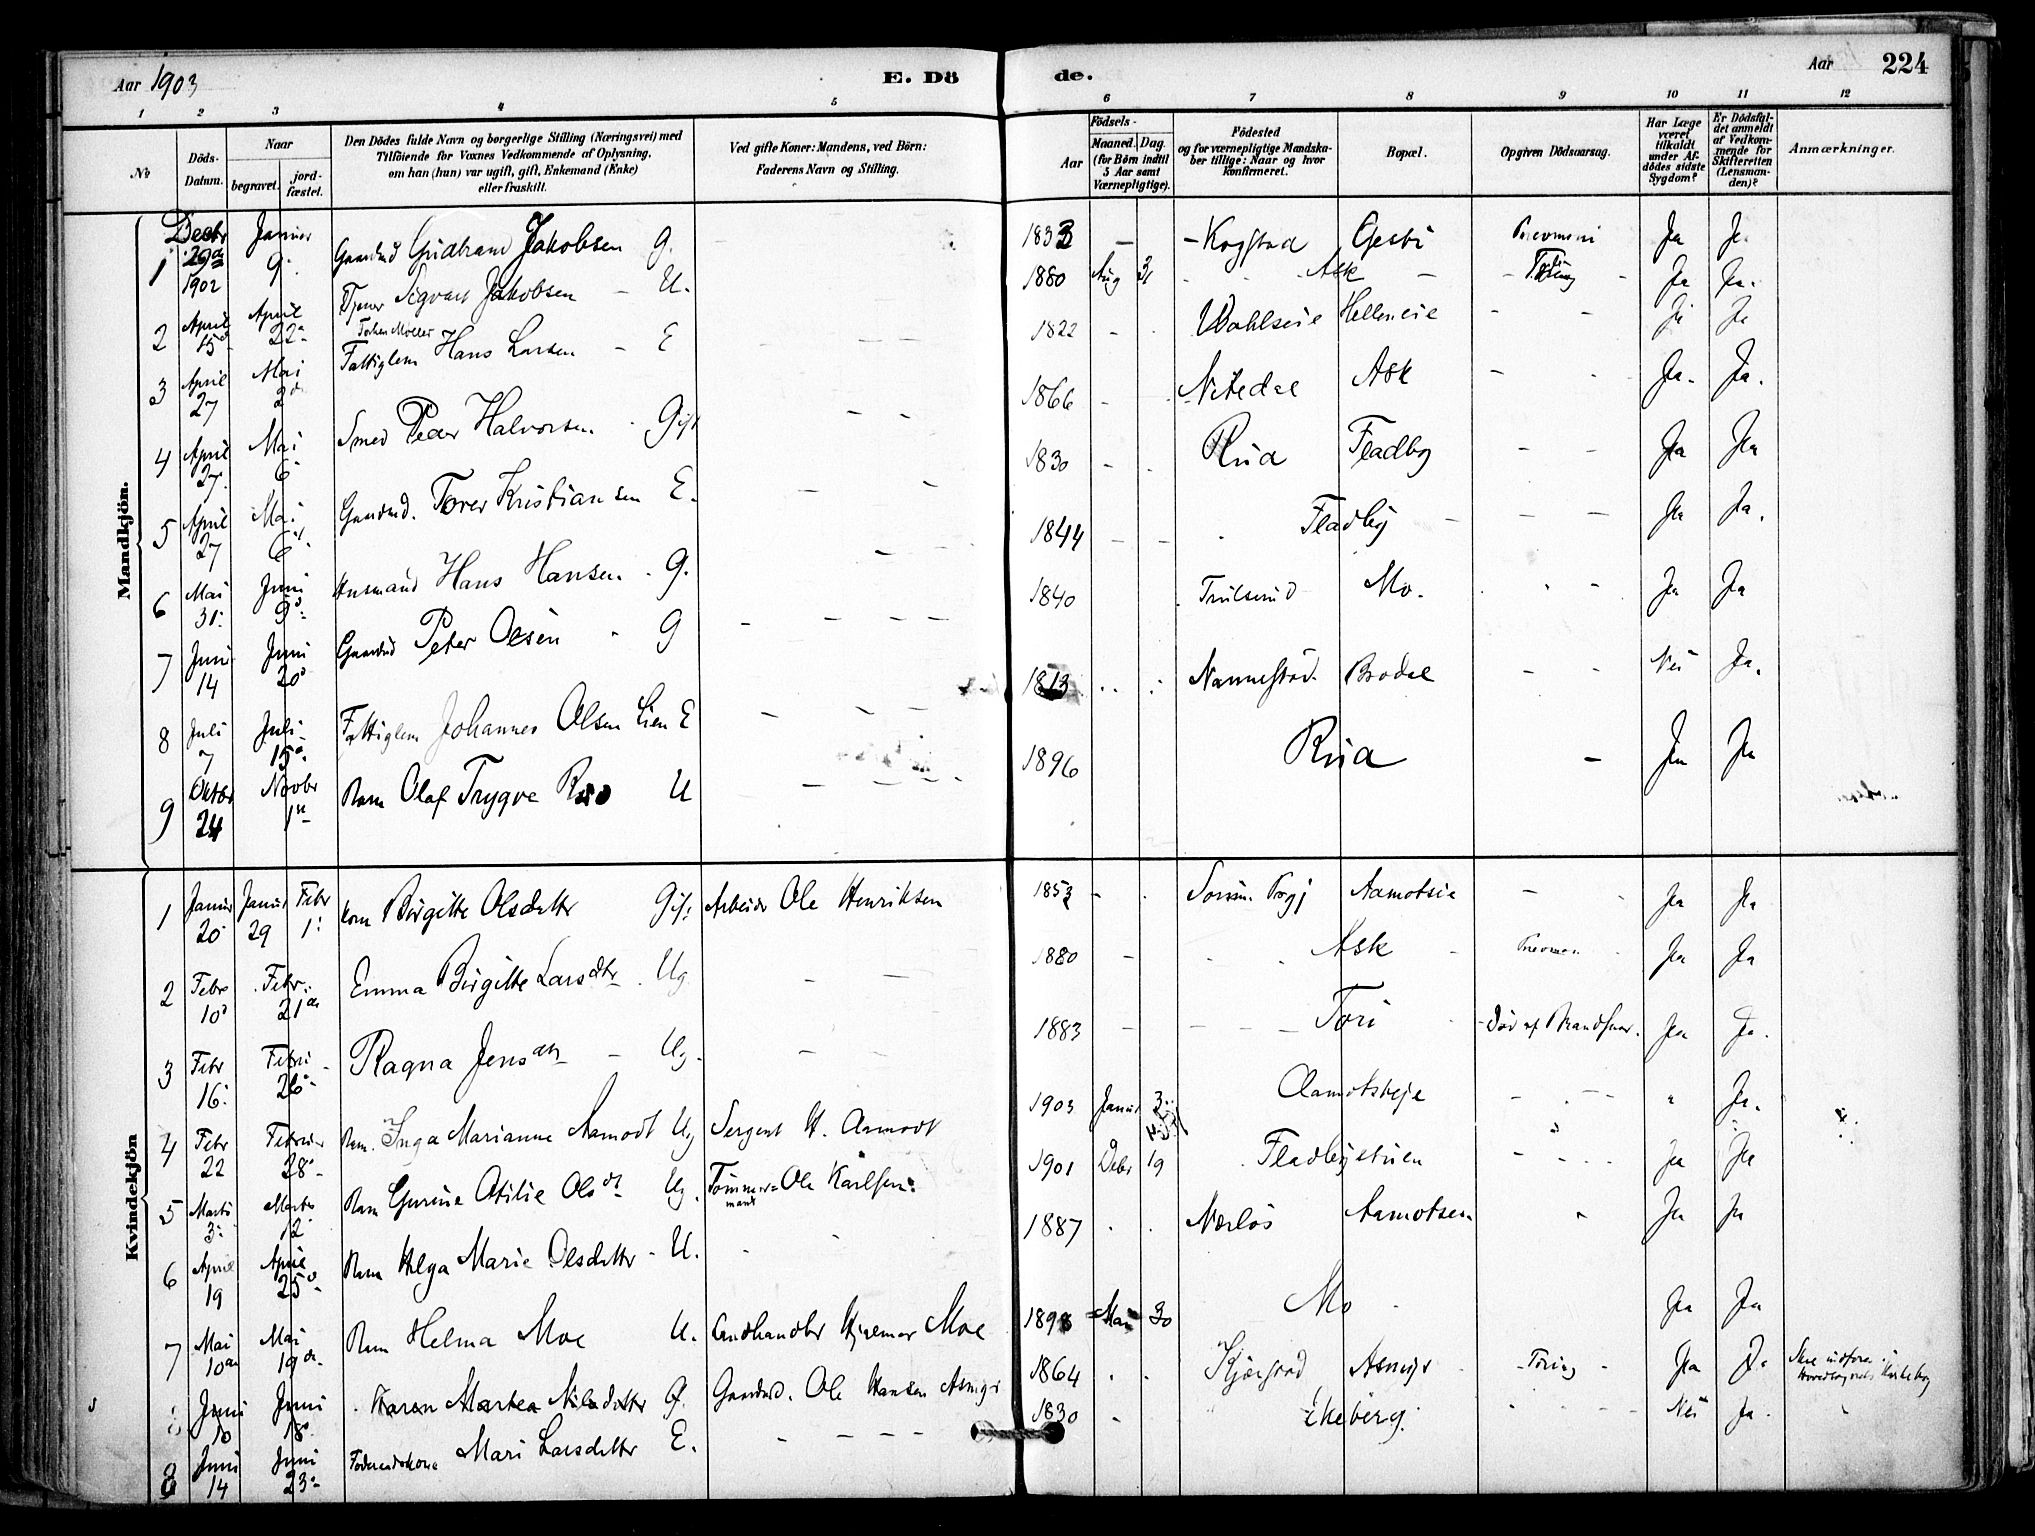 Aar 1903
E. Döde.
Aar 224
1 2 3 4 5 6 7 8 9 10 11 12
No
Döds-Datum.
Naar
begravet.
jordfæstet.
Den Dödes fulde Navn og borgerlige Stilling (Næringsvei) med
Tilföiende for Voxnes Vedkommende af Oplysning,
om han (hun) var ugift, gift, Enkemand (Enke)
eller fraskilt.
Ved gifte Koner: Mandens, ved Börn:
Faderens Navn og Stilling.
Födsels-
Aar
Maaned. Dag.
(for Börn indtil 5 Aar samt Værnepligtige).
Födested
og for værnepligtige Mandskaber tillige: Naar og hvor konfirmeret.
Bopæl.
Opgiven Dödsaarsag.
Har Læge været tilkaldt under Afdödes sidste Sygdom?
Er Dödsfaldet anmeldt af Vedkommende for Skifteretten (Lensmanden)?
Anmærkninger.
Mandkjön.
1 Decbr 29 1902 Januar 9 Gudbrand Jakobsen G. 1833 Kogstad Gesti Ja Ja
2 April 15 April 22 Tjener Sigvart Jakobsen U. 1880 Aug 31 Ask Tæring Ja Ja.
3 April 27 Mai 2 Fattiglem Hans Larsen E 1822 Helleneie Ja Ja
4 April 27 Mai 6 Smed Peder Halvorsen Gift 1866 Nitedal Ask Ja. Ja.
5 April 27 Mai 6 Gaardmd. Torer Kristiansen E. 1830 Rud Fladby Ja Ja
6 Mai 31 Juni 9 Husmand Hans Hansen G. 1844 Fladby Ja Ja.
7 Juni 14 Juni 20 Gaardmd Peter Olsen G 1840 Trulserud Mo. Ja Ja
8 Juli 7 Juli 15 Fattiglem Johannes Olsen Lien E 1813 Nannestad Brodal Nei Ja.
9 Oktbr 24 Novbr 1 Barn Olaf Trygve Rud U 1896 Rud Ja Ja
Kvindekjön
1 Januar 20 Januar 29 Febr 1 Kone Birgitte Olsdatter Gift Arbeider Ole Henriksen Aamotseie Ja Ja
2 Febr 10 Febr. 21 Emma Birgitte Larsdtr. Ug. 1880 Ask Ja Ja
3 Febr 16 Februar 26 Ragna Jensdtr Ug. 1883 Tori Død af Ja Ja.
4 Febr 22 Februar 28 Barn Inga Marianne Aamodt Ug Sergent H. Aamodt 1903 Januar 3 Ja.
5 Marts 3 Marts 12 Barn Gurine Otilie Olsdt Ug. Tømmermand Ole Karlsen 1901 Debr 19 Fladbystuen Ja Ja
6 April 19 April 25 Barn Helga Marie Olsdatter U. 1887 Nærløs Ja Ja
7 Mai 10 Mai 19 Barn Helma Moe U. Landhandler Hjalmar Moe 1898 Mai 30 Mo Ja Ja
8 Juni 10 Juni 18 Karen Martea Nilsdatter G. Gaardmd. Ole Hansen Asmyr 1864 Asmyr Tæring Ja Ja
9 Juni 14 Juni 23 Føderaadskone Mari Larsdatter E. 1830 Ekeberg. Nei Ja.